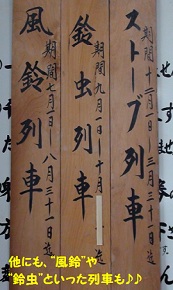 ストーブ列車
期間十二月一日〜三月三十一日迄
鈴虫列車
期間九月一日〜十月 迄
風鈴列車
期間七月一日〜八月三十一日迄
他にも、“風鈴”や
“鈴虫”といった列車も♪♪